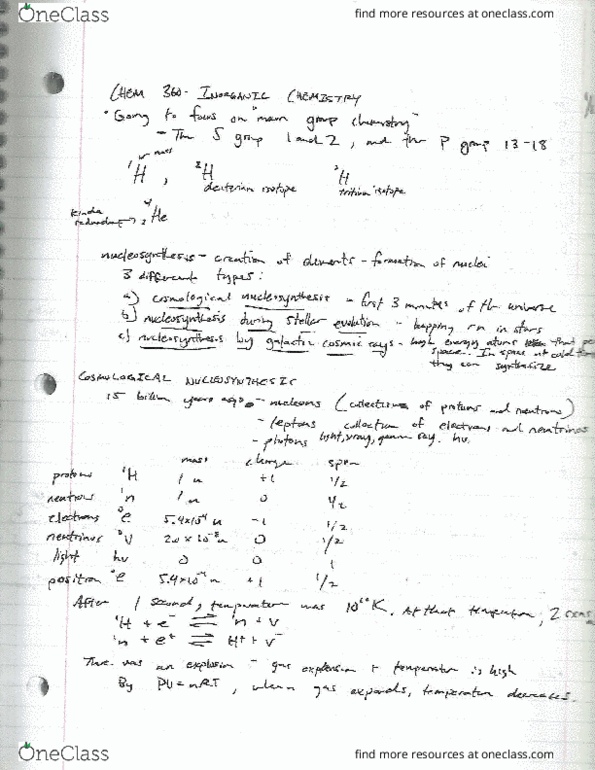 OneClass
find more resources at oneclass.com
CHEM 360 - INORGANIC CHEMISTRY
"Going to focus on "main group chemistry"
- The S group 1 and 2, and the P group 13-18
mass
¹H , ²H ³H
deuterium isotope tritium isotope
kinda redundant → ⁴₂He
nucleosynthesis - creation of elements - formation of nuclei
3 different types:
a) cosmological nucleosynthesis - first 3 minutes of the universe
b) nucleosynthesis during stellar evolution - happening in stars
c) nucleosynthesis by galactic cosmic rays - high energy atoms that
space. In space at cold
they can synthesize
COSMOLOGICAL NUCLEOSYNTHESIS
15 billion years ago - nucleons (collections of protons and neutrons)
- leptons collection of electrons and neutrinos
- photons light, xray, gamma ray. hv.
mass charge spin
protons ¹H 1 u +1 1/2
neutrons ¹n 1 u 0 1/2
electrons ⁰e 5.4x10⁻⁴ u -1 1/2
neutrinos ⁰v 0 1/2
light hv 0 0 1
positron ⁰e 5.4x10⁻⁴ u +1 1/2
After 1 second, temperature was K. At that temperature, 2
¹H + e⁻ ⇌ ¹n + v
¹n + e⁺ ⇌ H⁺ + v⁻
There was an explosion - gas expansion + temperature is high
By PV=nRT, when gas expands, temperature decreases.
OneClass
find more resources at oneclass.com